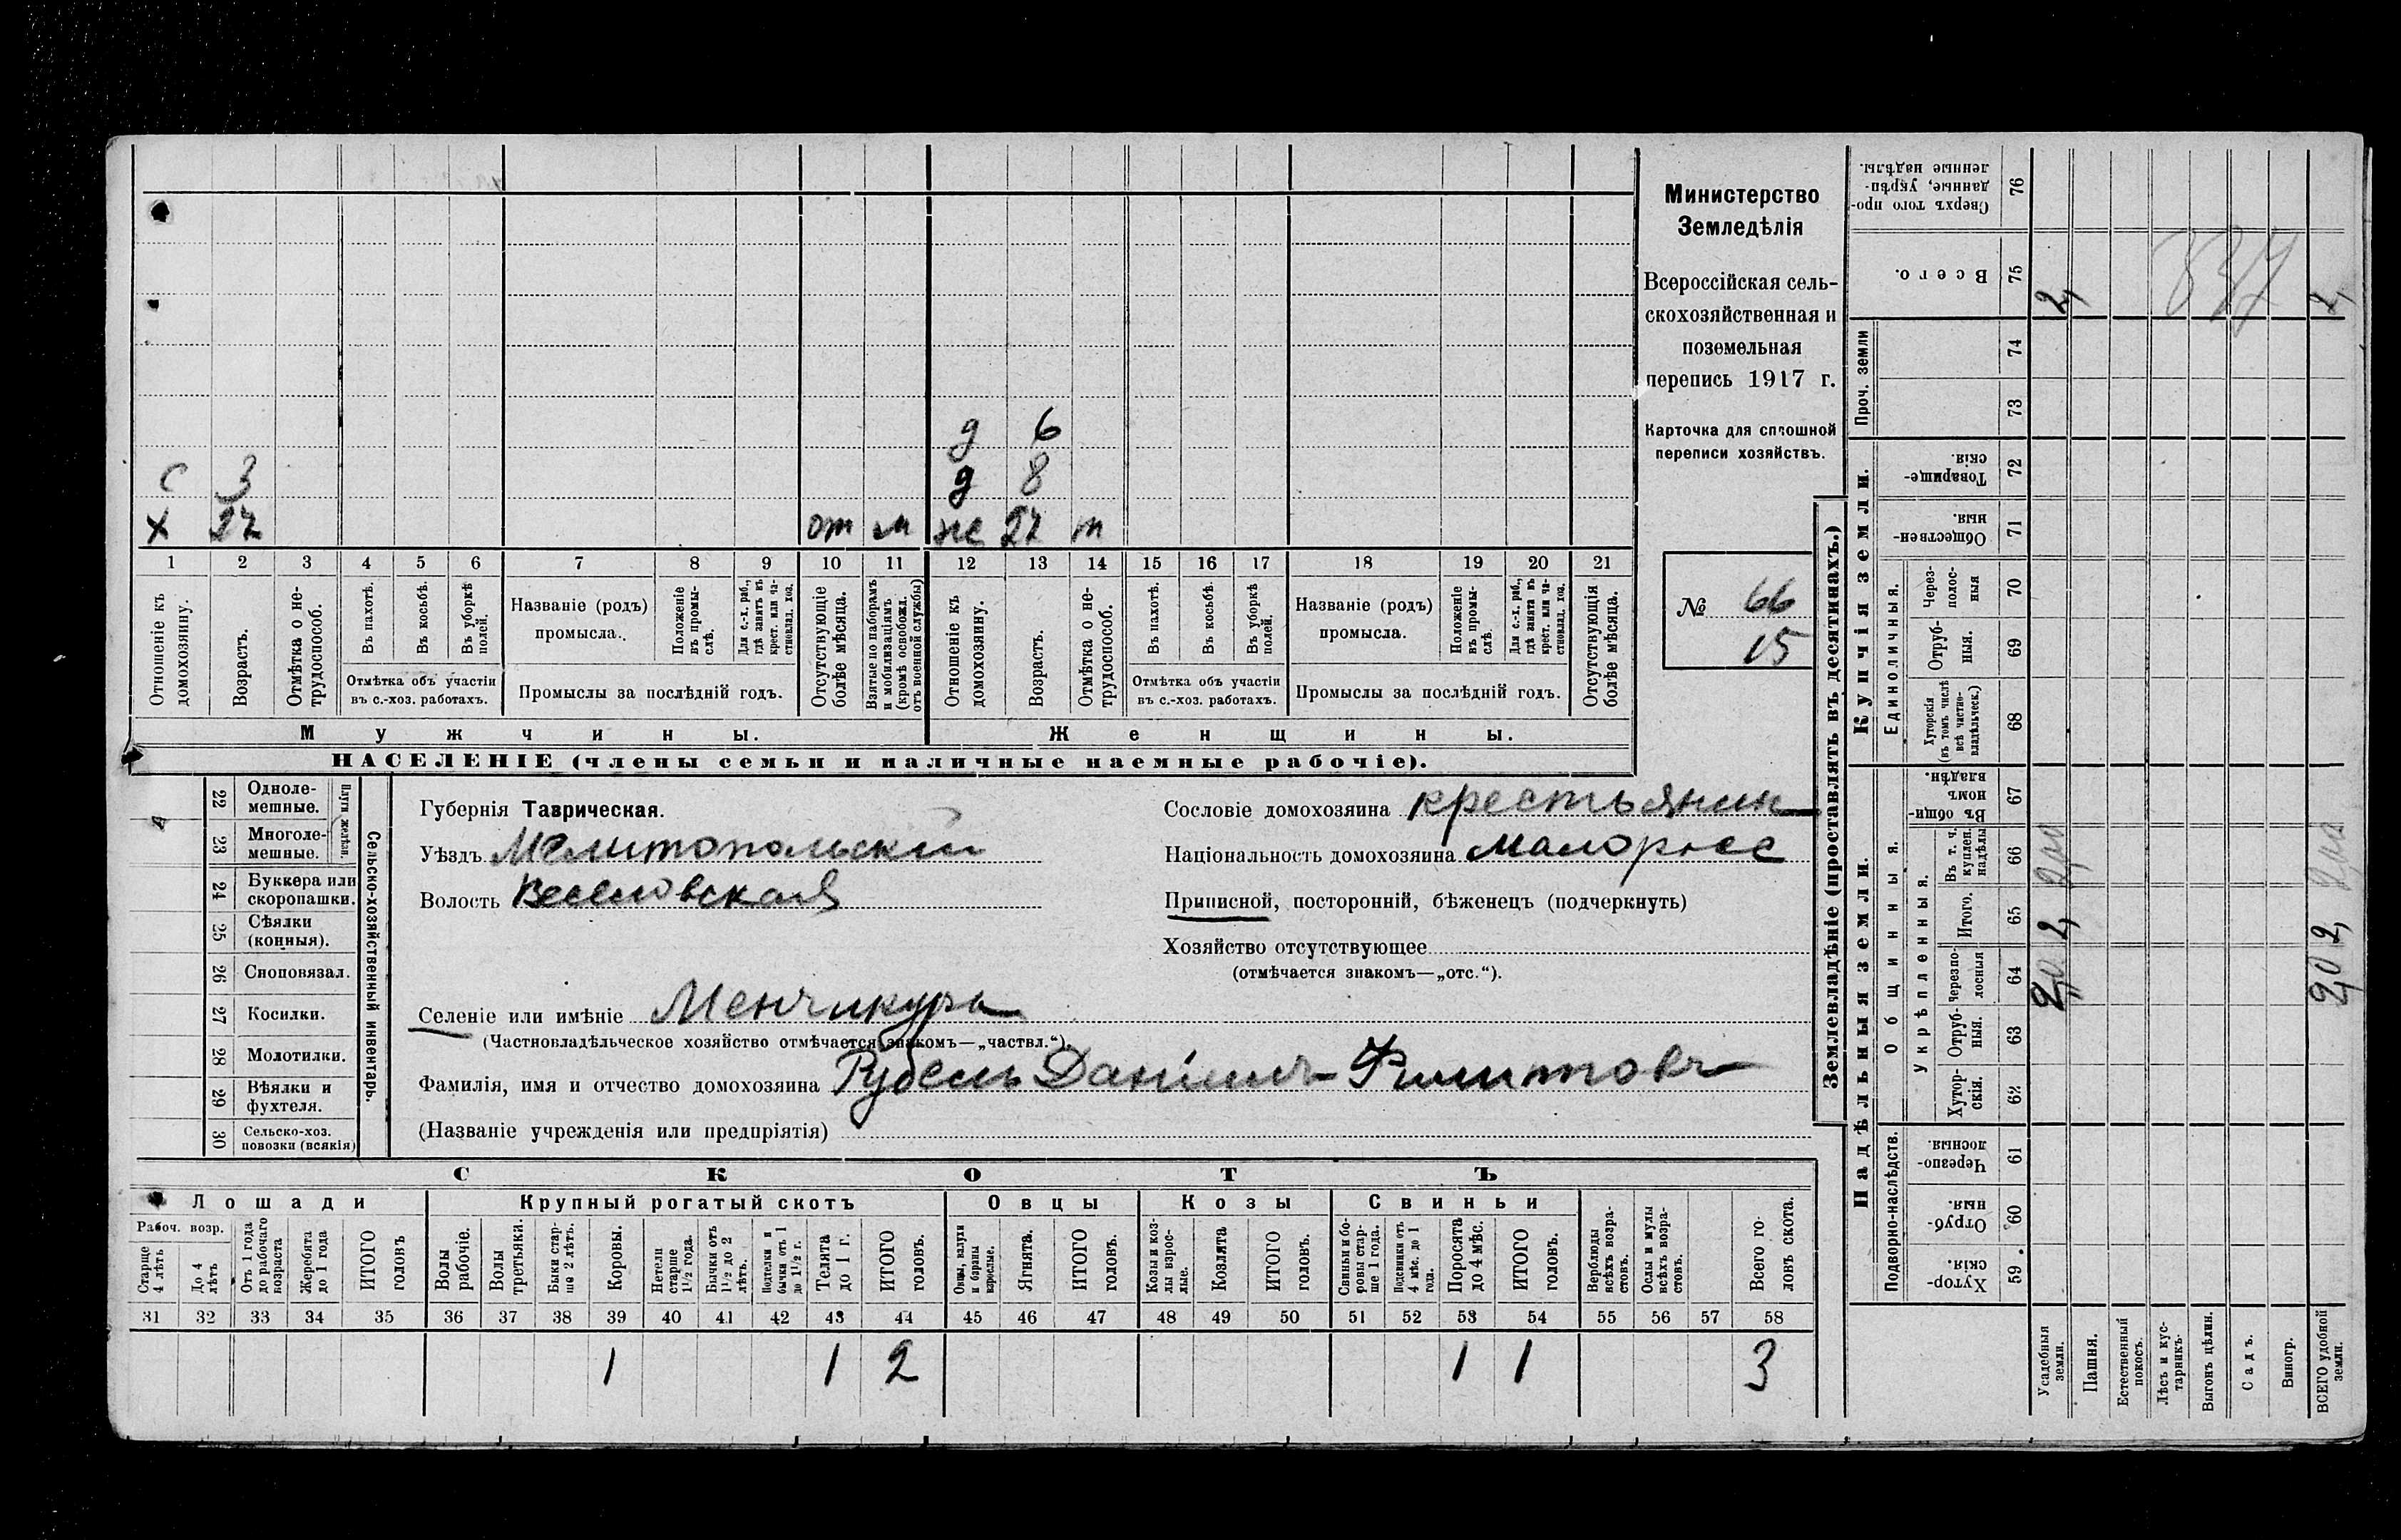 Министерство
Земледѣлія
Всероссійская сель-
скохозяйственная и
поземельная
перепись 1917 г.
Карточка для сплошной
переписи хозяйствъ.
№ 66
15
д 6
с 3 д 8
х 27 от м же 27 т
1 2 3 4 5 6 7 8 9 10 11 12 13 14 15 16 17 18 19 20 21
Отношеніе къ домохозяину.
Возрастъ.
Отмѣтка о не-трудоспособ.
Въ пахотѣ.
Въ косьбѣ.
Въ уборкѣ полей.
Отмѣтка объ участіи
въ с.-хоз. работахъ.
Названіе (родъ)
промысла.
Положеніе въ промы-слѣ.
Для с.-х. раб., гдѣ занятъ въ крест. или ча-стновлад. хоз.
Промыслы за послѣдній годъ.
Отсутствующіе болѣе мѣсяца.
Взятые по наборамъ и мобилизаціямъ (кромѣ освобожд. отъ военной службы)
Отношеніе къ домохозяину.
Возрастъ.
Отмѣтка о не-трудоспособ.
Въ пахотѣ.
Въ косьбѣ.
Въ уборкѣ полей.
Отмѣтка объ участіи
въ с.-хоз. работахъ.
Названіе (родъ)
промысла.
Положеніе въ промы-слѣ.
Для с.-х. раб., гдѣ занята въ крест. или ча-стновлад. хоз.
Промыслы за послѣдній годъ.
Отсутствующія болѣе мѣсяца.
Мужчины. Женщины.
НАСЕЛЕНІЕ (члены семьи и наличные наемные рабочіе).
22 Одноле-мешные.
23 Многоле-мешные.
Плуги желѣзн.
24 Буккера или скоропашки.
25 Сѣялки (конныя).
26 Сноповязал.
27 Косилки.
28 Молотилки.
29 Вѣялки и фухтеля.
30 Сельско-хоз. повозки (всякія)
Сельско-хозяйственный инвентарь.
Губернія Таврическая.
Уѣздъ Мелитопольскій
Волость Веселовская
Сословіе домохозяина крестьянин
Національность домохозяина малоросс
Приписной, посторонній, бѣженецъ (подчеркнуть)
Хозяйство отсутствующее
(отмѣчается знакомъ—„отс.“).
Селеніе или имѣніе Менчикуры
(Частновладѣльческое хозяйство отмѣчается знакомъ—„частвл.“).
Фамилія, имя и отчество домохозяина Рубель Даніилъ Филиповъ
(Названіе учрежденія или предпріятія)
СКОТЪ
Лошади Крупный рогатый скотъ Овцы Козы Свиньи
Рабоч. возр.
Старше 4 лѣтъ
До 4 лѣтъ
Отъ 1 года до рабочаго возраста
Жеребята до 1 года
ИТОГО головъ
Волы рабочіе.
Волы третьяки.
Быки стар-ше 2 лѣтъ.
Коровы.
Нетели старше 1½ года.
Бычки отъ 1½ до 2 лѣтъ.
Подтелки и бычки отъ 1 до 1½ г.
Телята до 1 г.
ИТОГО головъ.
Овцы, валухи и бараны взрослые.
Ягнята.
ИТОГО головъ.
Козы и коз-лы взрос-лые.
Козлята
ИТОГО головъ.
Свиньи и бо-ровы стар-ше 1 года.
Подсвинки отъ 4 мѣс. до 1 года.
Поросята до 4 мѣс.
ИТОГО головъ.
Верблюды всѣхъ возра-стовъ.
Ослы и мулы всѣхъ возра-стовъ.
Всего го-ловъ скота.
31 32 33 34 35 36 37 38 39 40 41 42 43 44 45 46 47 48 49 50 51 52 53 54 55 56 57 58
1 1 2 1 1 3
Землевладѣніе (проставлять въ десятинахъ.)
Надѣльныя земли. Купчія земли. Проч. земли
Подворно-наслѣдств.
Общинныя.
Укрѣпленныя.
Единоличныя.
Хутор-скія. 59
Отруб-ныя. 60
Черезпо-лосныя 61
Хутор-скія. 62
Отруб-ныя. 63
Черезпо-лосныя 64
Итого. 65
Въ т. ч. куплен. надѣлы 66
Въ общи-номъ владѣн. 67
Хуторскія (въ томъ числѣ всѣ частно-владѣльческ.) 68
Отруб-ныя. 69
Через-полос-ныя 70
Обществен-ныя. 71
Товарище-скія. 72
73
74
Всего. 75
Сверхъ того про-данные, укрѣп-ленные надѣлы. 76
Усадебныя земли.
Пашня.
Естественный покосъ.
Лѣсъ и кус-тарникъ.
Выгонъ цѣлин.
Садъ.
Виногр.
ВСЕГО удобной земли.